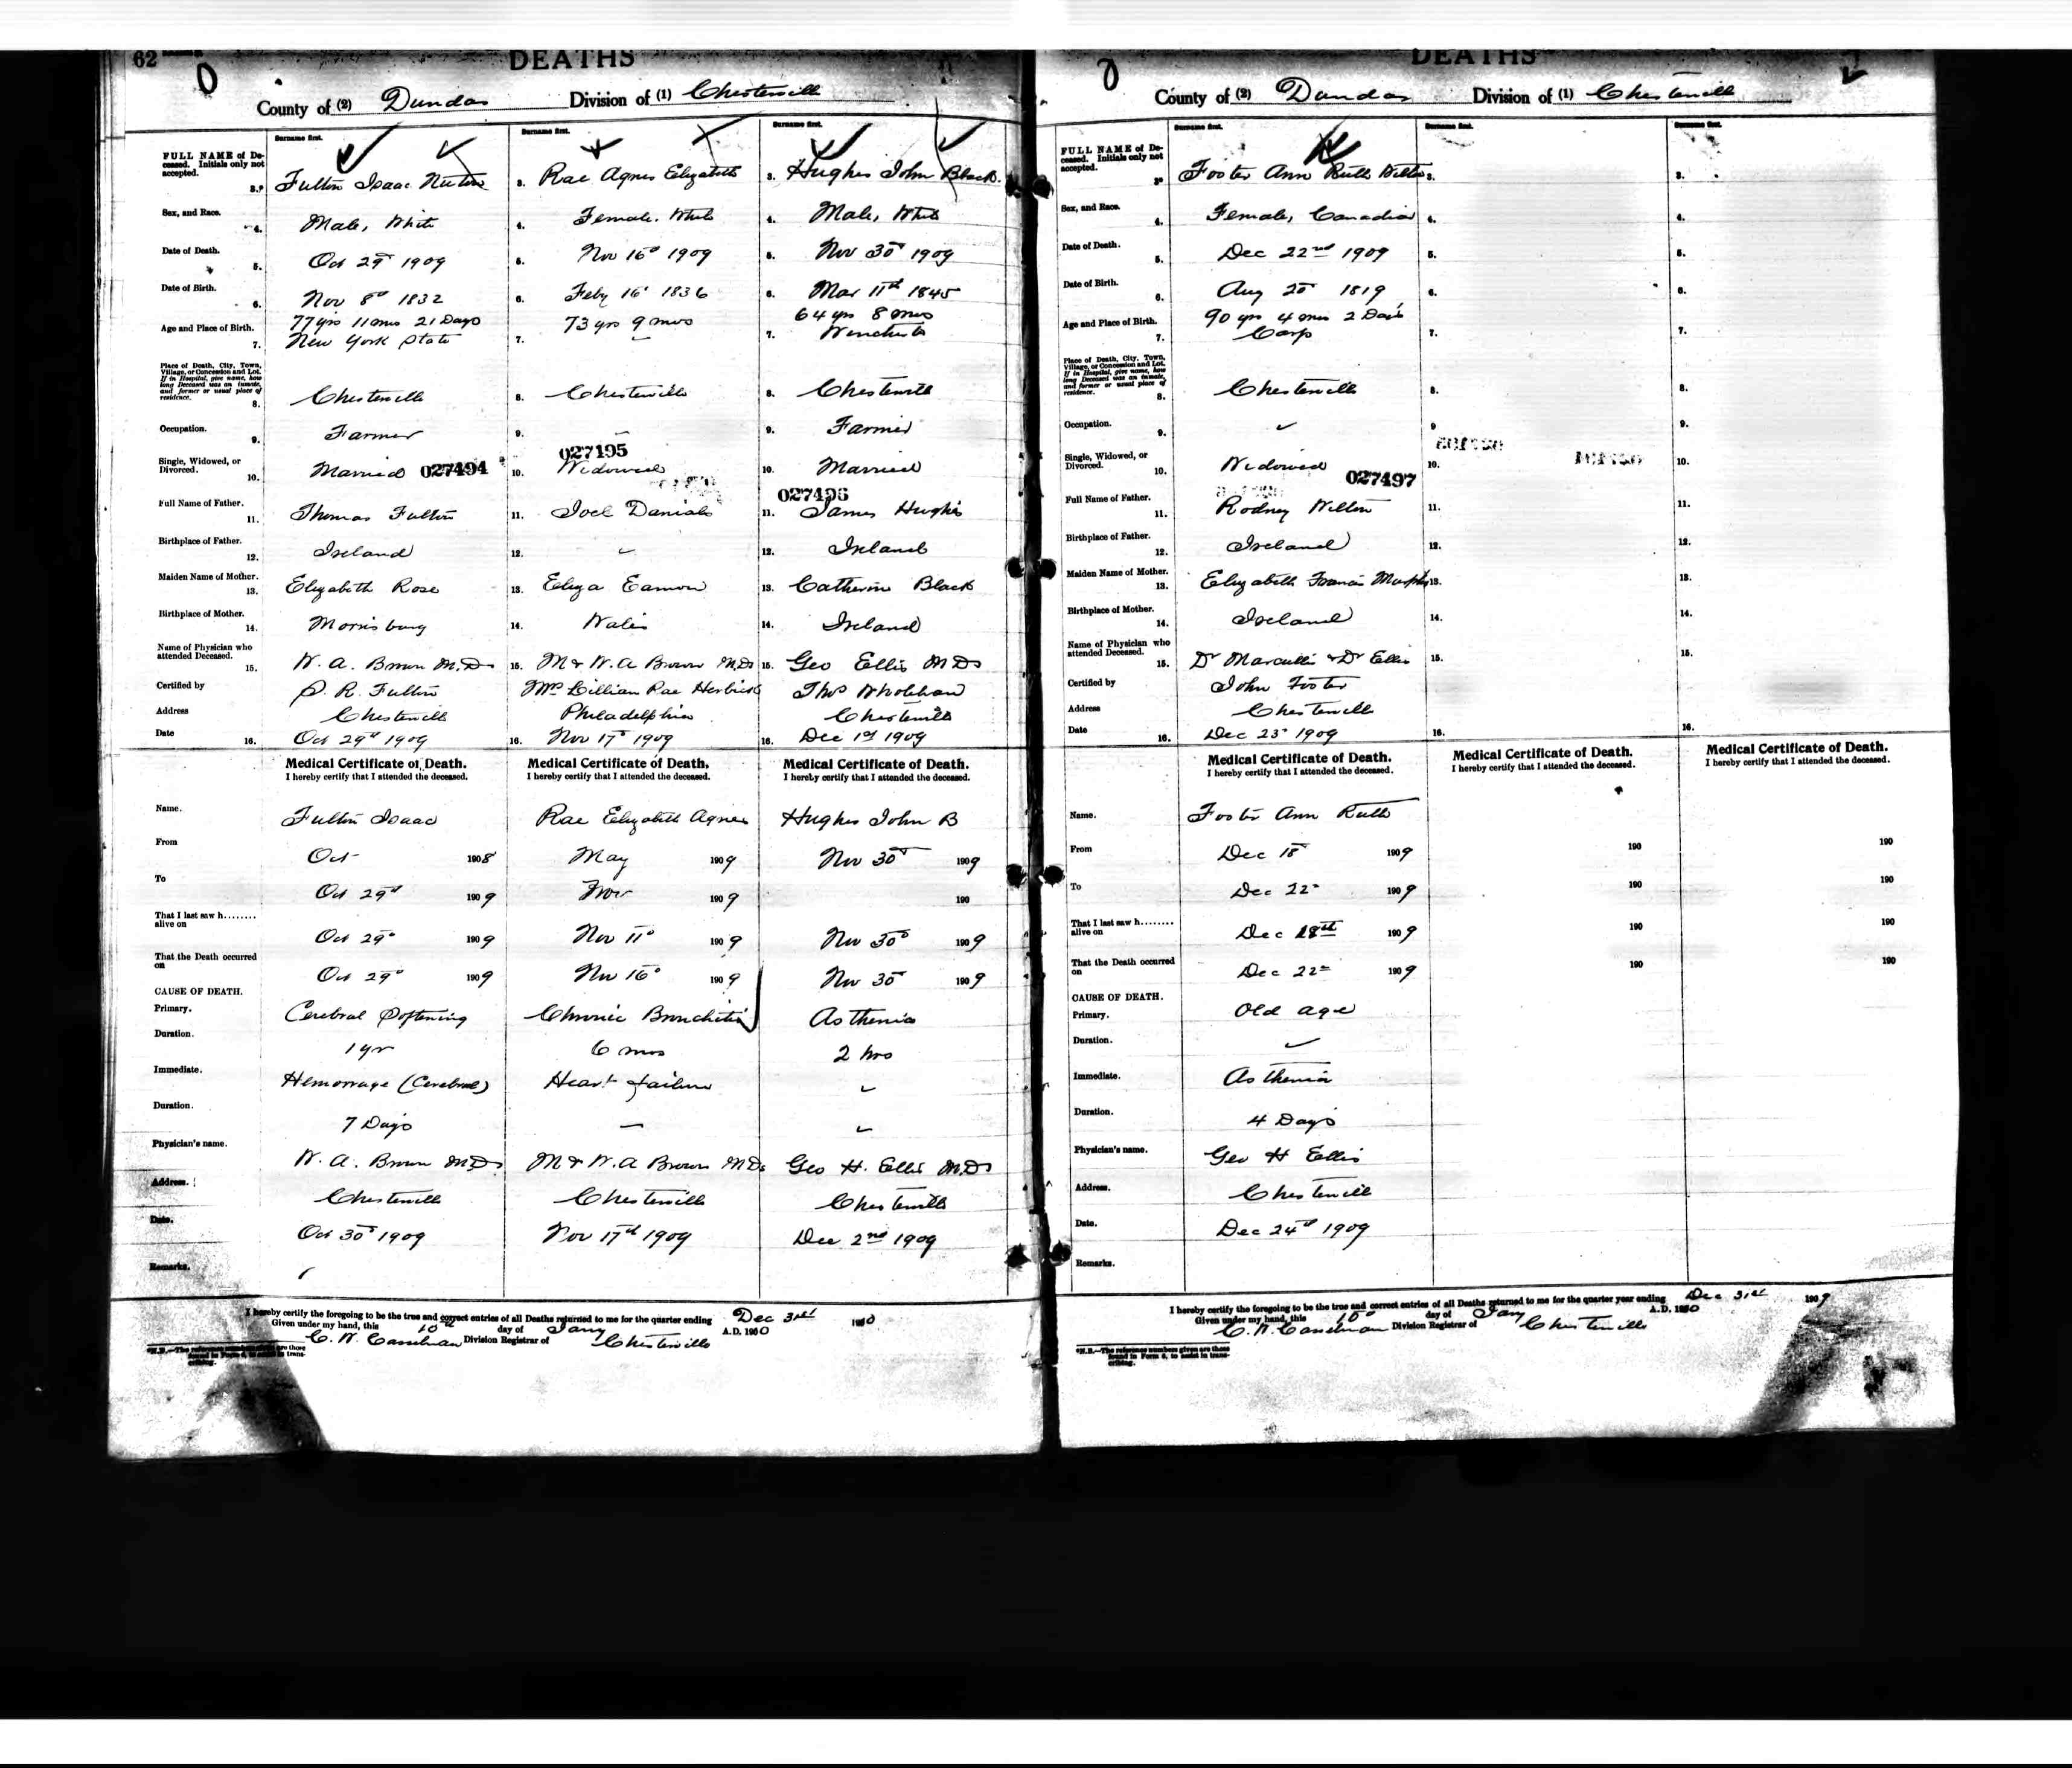 62
DEATHS
County of (2) Dundas Division of (1) Chesterville
Surname first. Surname first. Surname first.
FULL NAME of Deceased. Initials only not accepted. 3. Fulton Isaac Newton 3. Rae Agnes Elizabeth 3. Hughes John Black.
Sex, and Race. 4. Male, White 4. Female, White 4. Male, White
Date of Death. 5. Oct 29th 1909 5. Nov 16th 1909 5. Nov 30th 1909
Date of Birth. 6. Nov 8th 1832 6. Feby 16th 1836 6. Mar 11th 1845
Age and Place of Birth. 77 yrs 11 mos 21 Days 73 yrs 9 mos 64 yrs 8 mos
7. New York State 7. 7. Winchester
Place of Death, City, Town, Village, or Concession and Lot. If in Hospital, give name, how long Deceased was an inmate, and former or usual place of residence. 8. Chesterville 8. Chesterville 8. Chesterville
Occupation. 9. Farmer 9. – 9. Farmer
027195
Single, Widowed, or Divorced. 10. Married 027494 10. Widowed 10. Married
027496
Full Name of Father. 11. Thomas Fulton 11. Joel Daniels 11. James Hughes
Birthplace of Father. 12. Ireland 12. 12. Ireland
Maiden Name of Mother. 13. Elizabeth Rose 13. Eliza Eamon 13. Catherine Black
Birthplace of Mother. 14. Morrisburg 14. Wales 14. Ireland
Name of Physician who attended Deceased. 15. W. A. Brown M.D. 15. M & W. A Brown M.Ds 15. Geo Ellis M D
Certified by S. R. Fulton Mrs Lillian Rae Thos
Address Chesterville Philadelphia Chesterville
Date 16. Oct 29th 1909 16. Nov 17th 1909 16. Dec 1st 1909
Medical Certificate of Death. Medical Certificate of Death. Medical Certificate of Death.
I hereby certify that I attended the deceased. I hereby certify that I attended the deceased. I hereby certify that I attended the deceased.
Name. Fulton Isaac Rae Elizabeth Agnes Hughes John B
From Oct 1908 May 1909 Nov 30th 1909
To Oct 29th 1909 Nov 1909 190
That I last saw h........ alive on Oct 29th 1909 Nov 11th 1909 Nov 30th 1909
That the Death occurred on Oct 29th 1909 Nov 16th 1909 Nov 30th 1909
CAUSE OF DEATH.
Primary. Cerebral Softening Chronic Bronchitis Asthenia
Duration. 1 yr 6 mos 2 hrs
Immediate. Hemorrage (Cerebral) Heart failure
Duration. 7 Days —
Physician's name. W. A. Brown M.D. M & W. A Brown M.Ds Geo H. Ellis M.D
Address. Chesterville Chesterville Chesterville
Date. Oct 30th 1909 Nov 17th 1909 Dec 2nd 1909
Remarks.
I hereby certify the foregoing to be the true and correct entries of all Deaths returned to me for the quarter ending Dec 31st 1910
Given under my hand, this 10th day of Jany A.D. 1910
C. W. Casselman Division Registrar of Chesterville
*N.B.—The reference numbers given are those found in Form 6, to assist in transcribing.
DEATHS
County of (2) Dundas Division of (1) Chesterville
Surname first. Surname first. Surname first.
FULL NAME of Deceased. Initials only not accepted. 3. Foster Ann Ruth Wilton 3. 3.
Sex, and Race. 4. Female, Canadian 4. 4.
Date of Death. 5. Dec 22nd 1909 5. 5.
Date of Birth. 6. Aug 20th 1819 6. 6.
Age and Place of Birth. 90 yrs 4 mos 2 Days
7. Carp 7. 7.
Place of Death, City, Town, Village, or Concession and Lot. If in Hospital, give name, how long Deceased was an inmate, and former or usual place of residence. 8. Chesterville 8. 8.
Occupation. 9. 9 9.
Single, Widowed, or Divorced. 10. Widowed 027497 10. 10.
Full Name of Father. 11. Rodney Wilton 11. 11.
Birthplace of Father. 12. Ireland 12. 12.
Maiden Name of Mother. 13. Elizabeth Francis Murphy 13. 13.
Birthplace of Mother. 14. Ireland 14. 14.
Name of Physician who attended Deceased. 15. Dr & Dr Ellis 15. 15.
Certified by John Foster
Address Chesterville
Date 16. Dec 23rd 1909 16. 16.
Medical Certificate of Death. Medical Certificate of Death. Medical Certificate of Death.
I hereby certify that I attended the deceased. I hereby certify that I attended the deceased. I hereby certify that I attended the deceased.
Name. Foster Ann Ruth
From Dec 18th 1909 190 190
To Dec 22nd 1909 190 190
That I last saw h........ alive on Dec 18th 1909 190 190
That the Death occurred on Dec 22nd 1909 190 190
CAUSE OF DEATH.
Primary. Old age
Duration.
Immediate. Asthenia
Duration. 4 Days
Physician's name. Geo H Ellis
Address. Chesterville
Date. Dec 24th 1909
Remarks.
I hereby certify the foregoing to be the true and correct entries of all Deaths returned to me for the quarter year ending Dec 31st 1909
Given under my hand, this 10th day of Jany A.D. 1910
C. W. Casselman Division Registrar of Chesterville
*N.B.—The reference numbers given are those found in Form 6, to assist in transcribing.